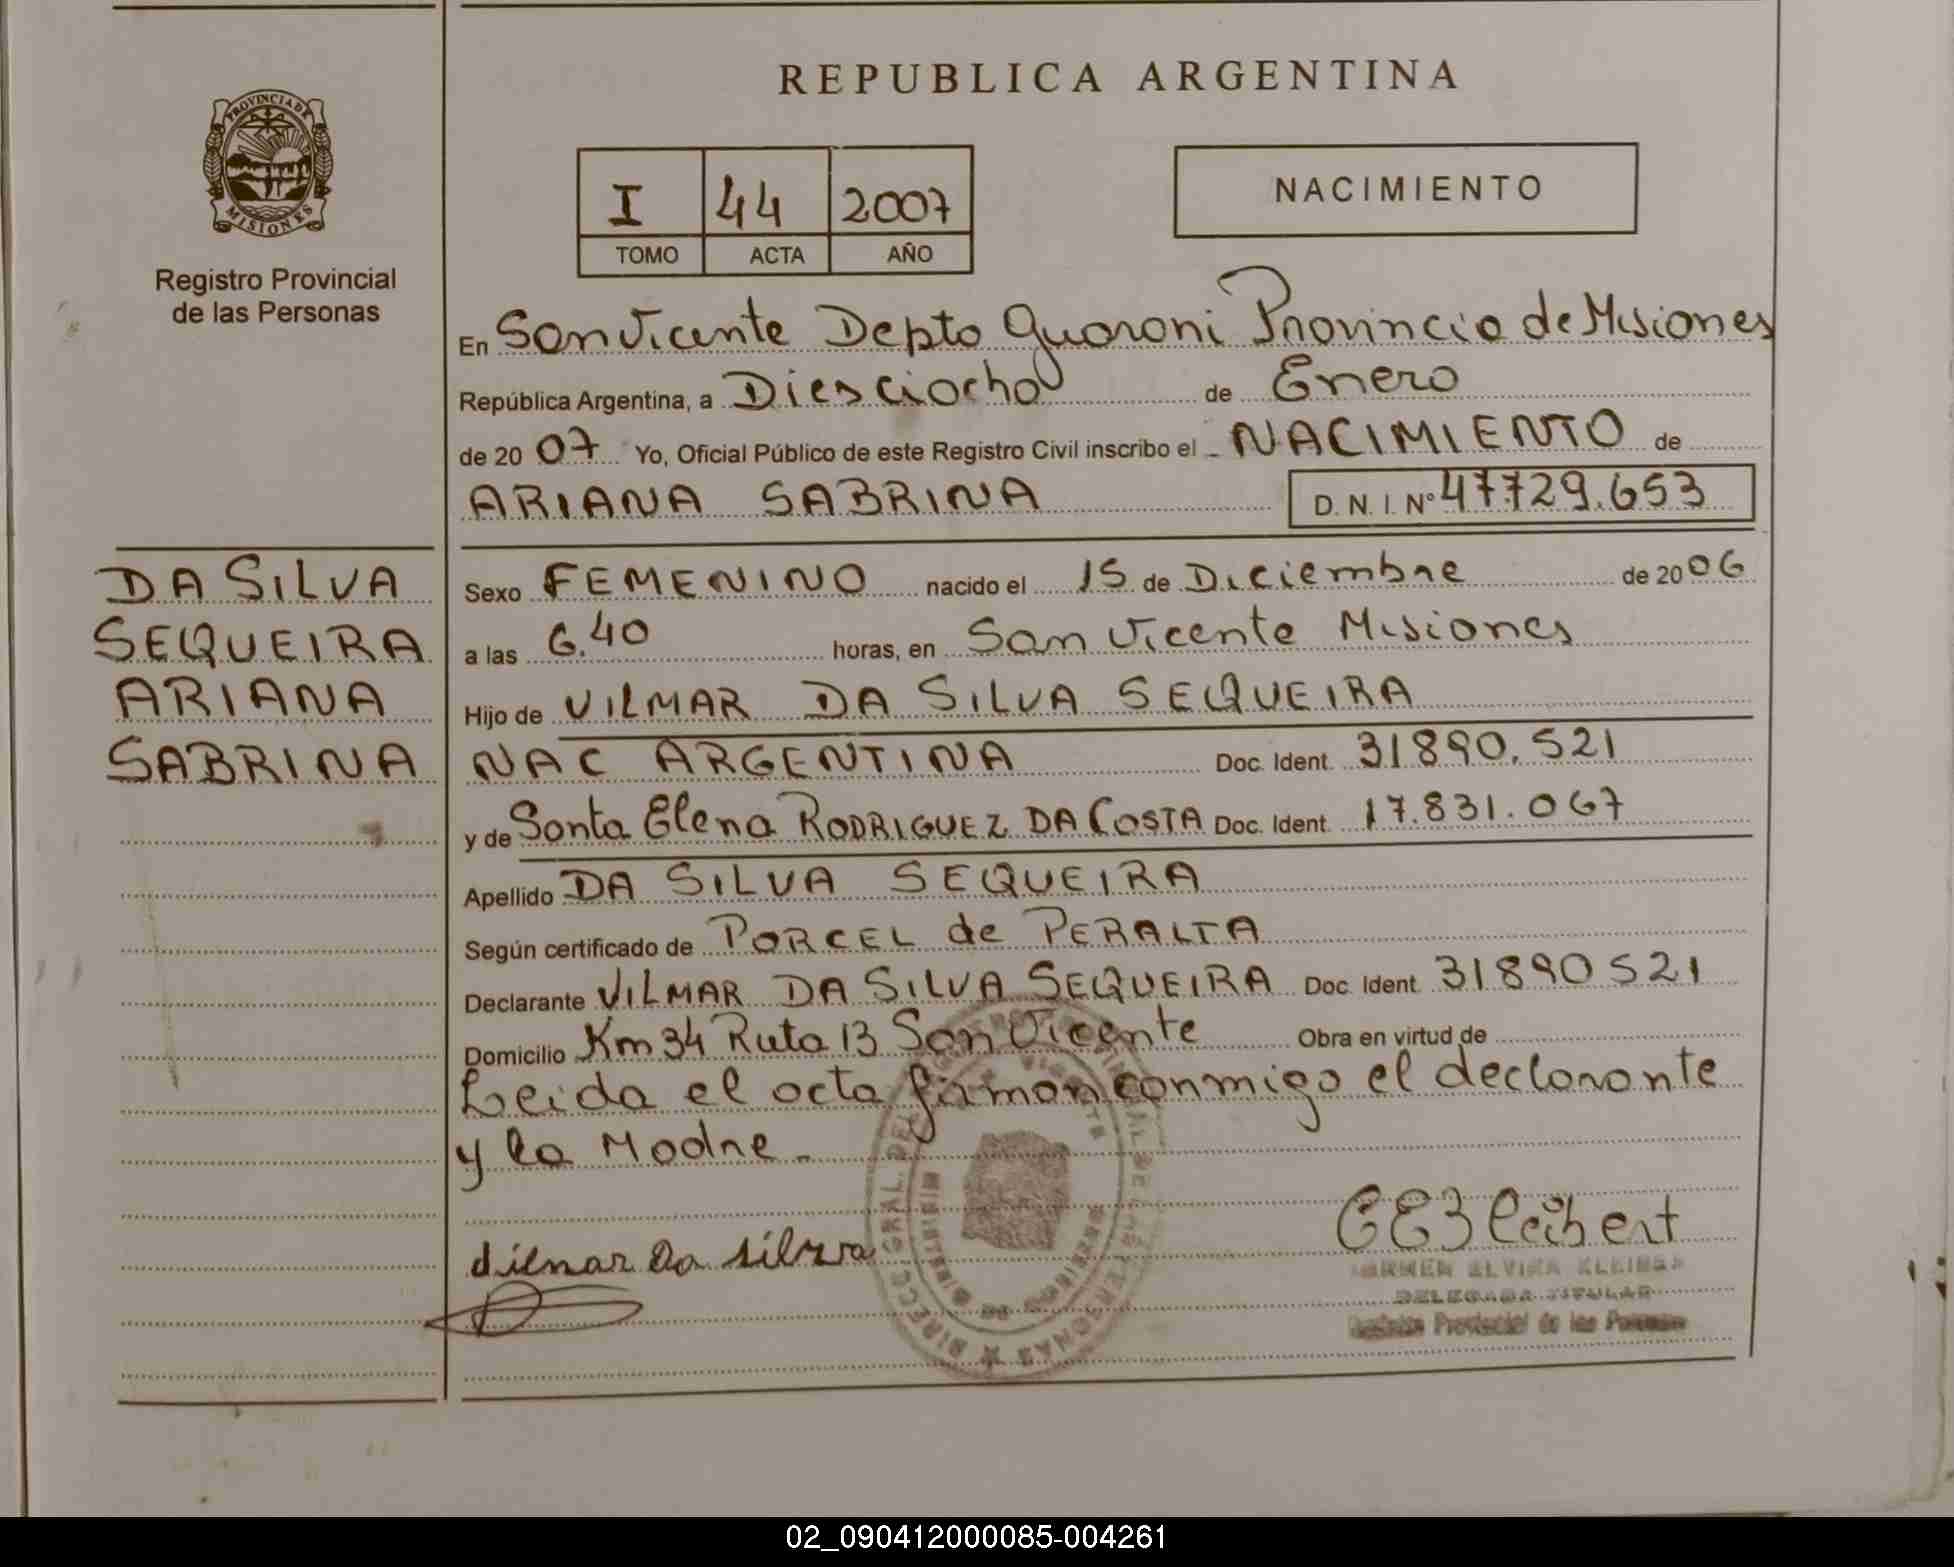 REPUBLICA ARGENTINA
PROVINCIA DE
MISIONES
Registro Provincial
de las Personas
I 44 2007
TOMO ACTA AÑO
NACIMIENTO
En San Vicente Depto Guarani Provincia de Misiones
República Argentina, a Diesciocho de Enero
de 2007 Yo, Oficial Público de este Registro Civil inscribo el NACIMIENTO de
ARIANA SABRINA D. N. I. Nº 47729.653
DA SILVA
SEQUEIRA
ARIANA
SABRINA
Sexo FEMENINO nacido el 15 de Diciembre de 2006
a las 6.40 horas, en San Vicente Misiones
Hijo de VILMAR DA SILVA SEQUEIRA
NAC ARGENTINA Doc. Ident. 31890.521
y de Santa Elena RODRIGUEZ DA COSTA Doc. Ident. 17.831.067
Apellido DA SILVA SEQUEIRA
Según certificado de PORCEL de PERALTA
Declarante VILMAR DA SILVA SEQUEIRA Doc. Ident. 31890521
Domicilio Km 34 Ruta 13 San Vicente Obra en virtud de
Leida el acta firman conmigo el declarante
y la Madre.
DELEGADA TITULAR
Provincial de las Personas
02_090412000085-004261